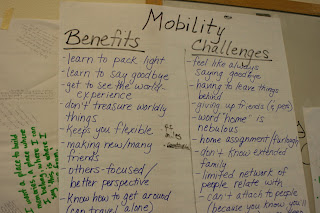 Mobility
Benefits
- learn to pack light
- learn to say goodbye
- get to see the world -
experience
- don't treasure worldly
things
- keeps you flexible
- making new/many
friends
- others-focused/
better perspective
- know how to get around
(can travel alone)
Challenges
- feel like always
saying goodbye
- having to leave things
behind
- giving up friends (& pets)
- word "home" is
nebulous
- home assignment/furlough
- don't know extended
family
- limited network of
people relate with
- can't attach to people
(because you know you'll